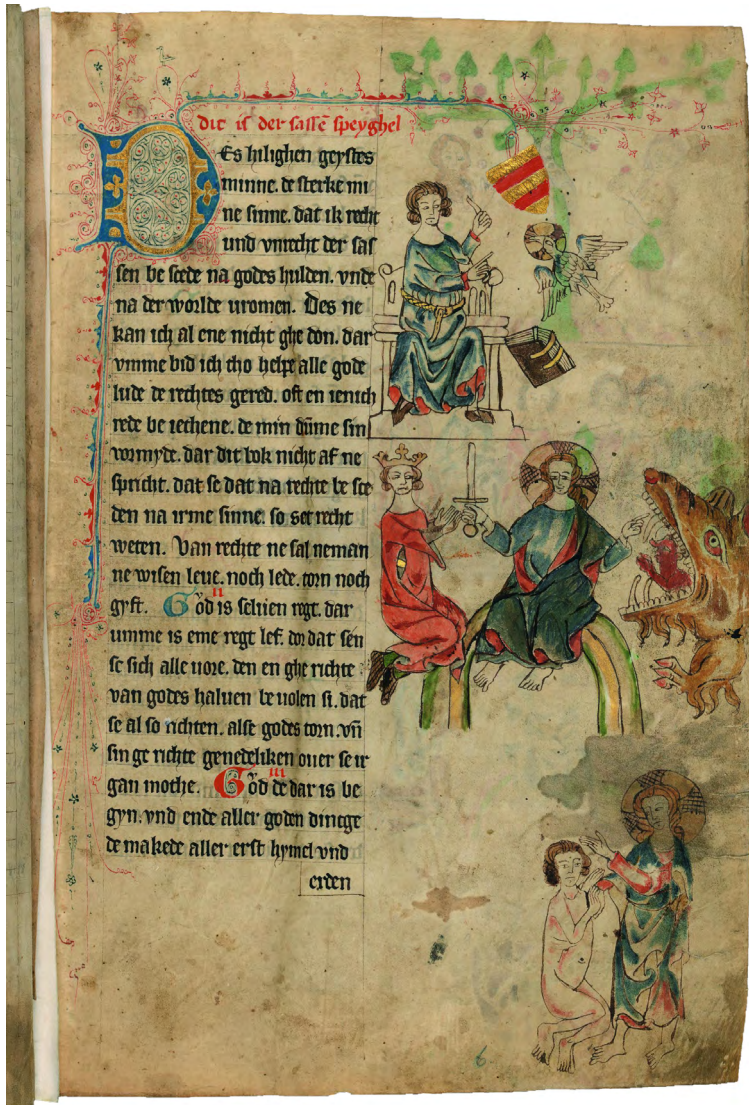 dit is der sassē speyghel
Des hilighen geystes
minne. de sterke mi
ne sinne. dat ik recht
und vnrecht der sas
sen be scede na godes hulden. vnde
na der worlde uromen. Des ne
kan ich al ene nicht ghe don. dar
vmme bid ich tho helpe alle gode
lude de rechtes gered. oft en ienich
rede be iechene. de min dūme sin
vormyde. dar dit bok nicht af ne
spricht. dat se dat na rechte be sce
den na irme sinne. so set recht
weten. Van rechte ne sal neman
ne wisen leue. noch lede. torn noch
gyft. God is seluen regt. dar
umme is eme regt lef. dor dat sen
se sich alle uore. den en ghe richte
van godes haluen be uolen si. dat
se al so richten. alse godes torn. vñ
sin ge richte genedeliken ouer se ir
gan mothe. God de dar is be
gyn. vnd ende aller goden dinege
de makede aller erst hymel vnd
erden
6